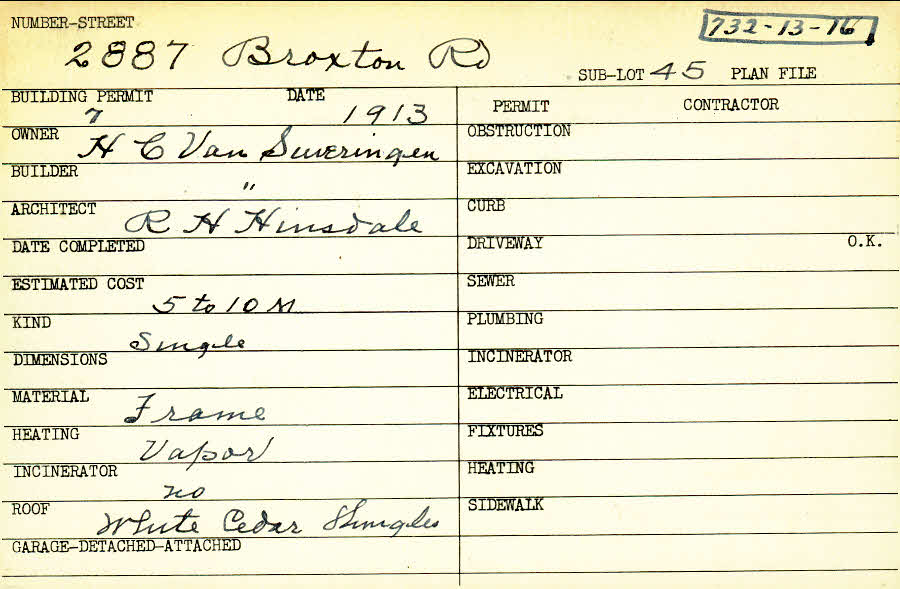 NUMBER-STREET 732-13-16
2887 Broxton Rd
SUB-LOT 45 PLAN FILE
BUILDING PERMIT DATE
7 1913
OWNER
H C Van Suveringen
BUILDER
"
ARCHITECT
R H Hinsdale
DATE COMPLETED
ESTIMATED COST
5 to 10 M
KIND
Single
DIMENSIONS
MATERIAL
Frame
HEATING
Vapor
INCINERATOR
no
ROOF
White Cedar Shingles
GARAGE-DETACHED-ATTACHED
PERMIT CONTRACTOR
OBSTRUCTION
EXCAVATION
CURB
DRIVEWAY O.K.
SEWER
PLUMBING
INCINERATOR
ELECTRICAL
FIXTURES
HEATING
SIDEWALK